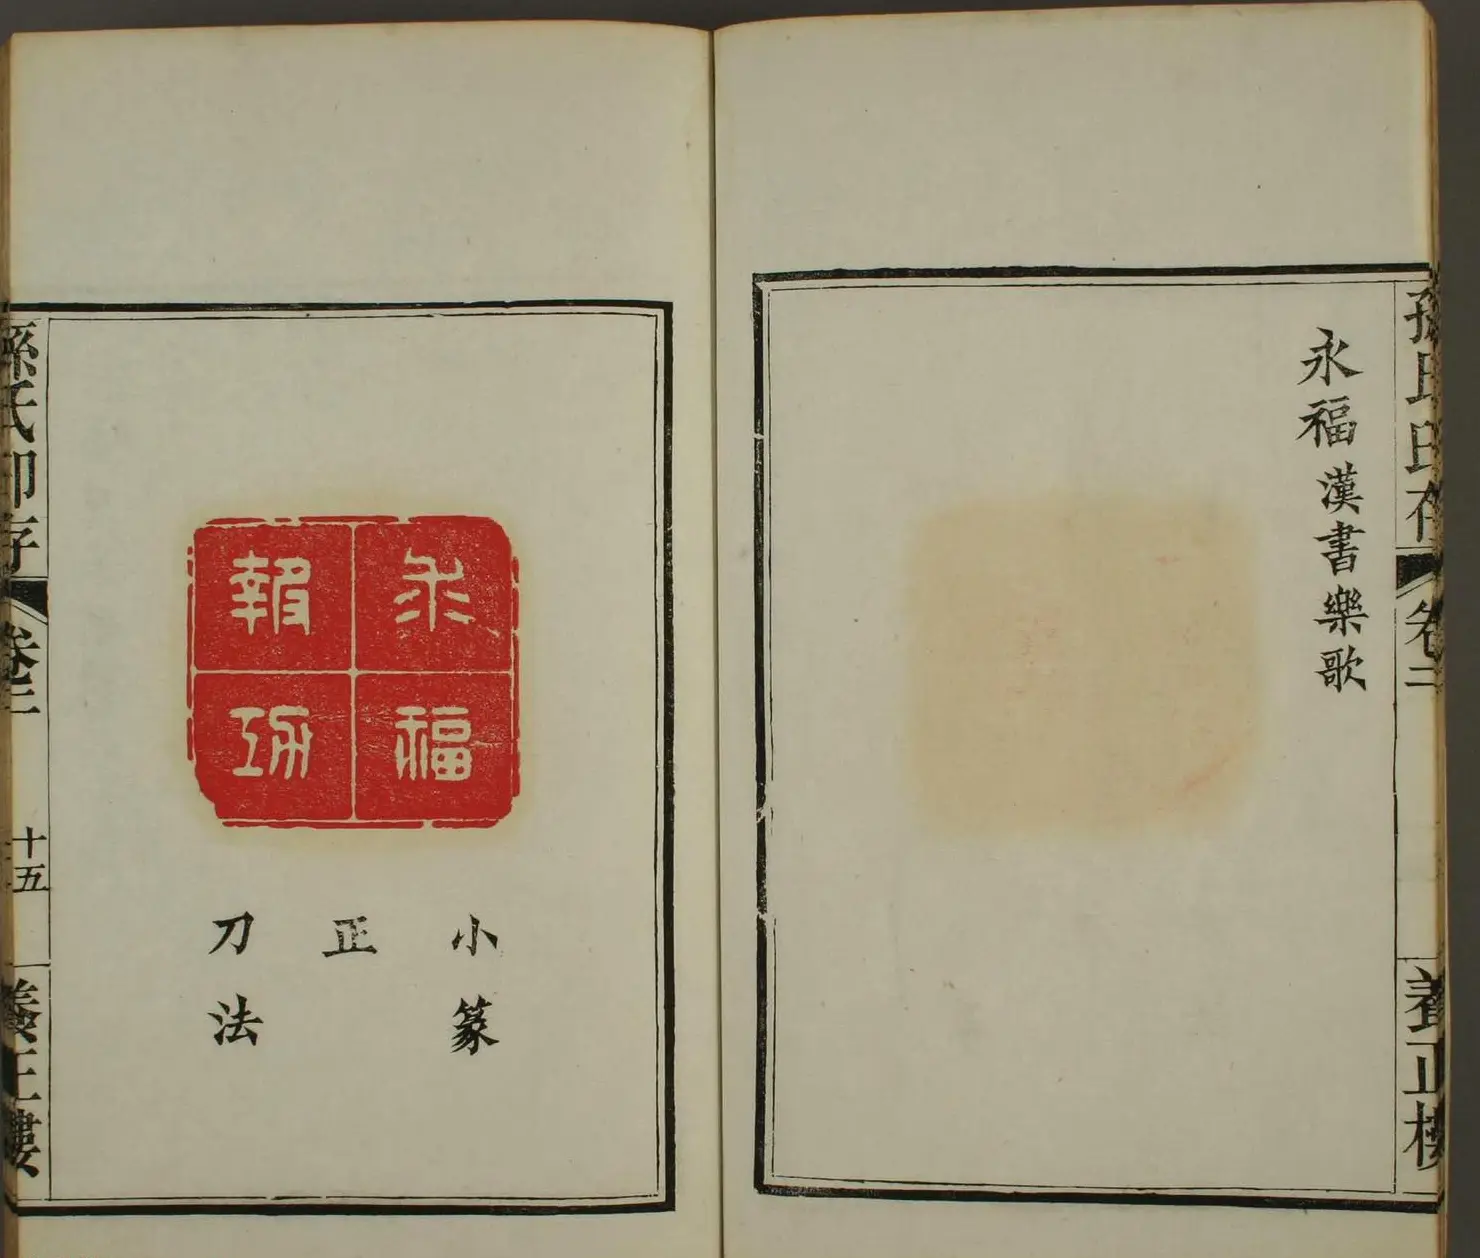 孫氏印存
卷
養正樓
永福漢書樂歌
永福
報功
小篆
正
刀法
孫氏印存
卷
十五
養正樓